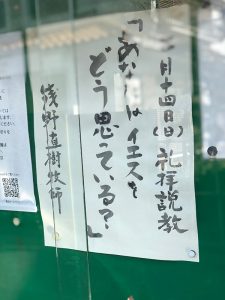 月十四日(日)礼拝説教
「あなたはイエスを
どう思っている?」
浅野直樹牧師